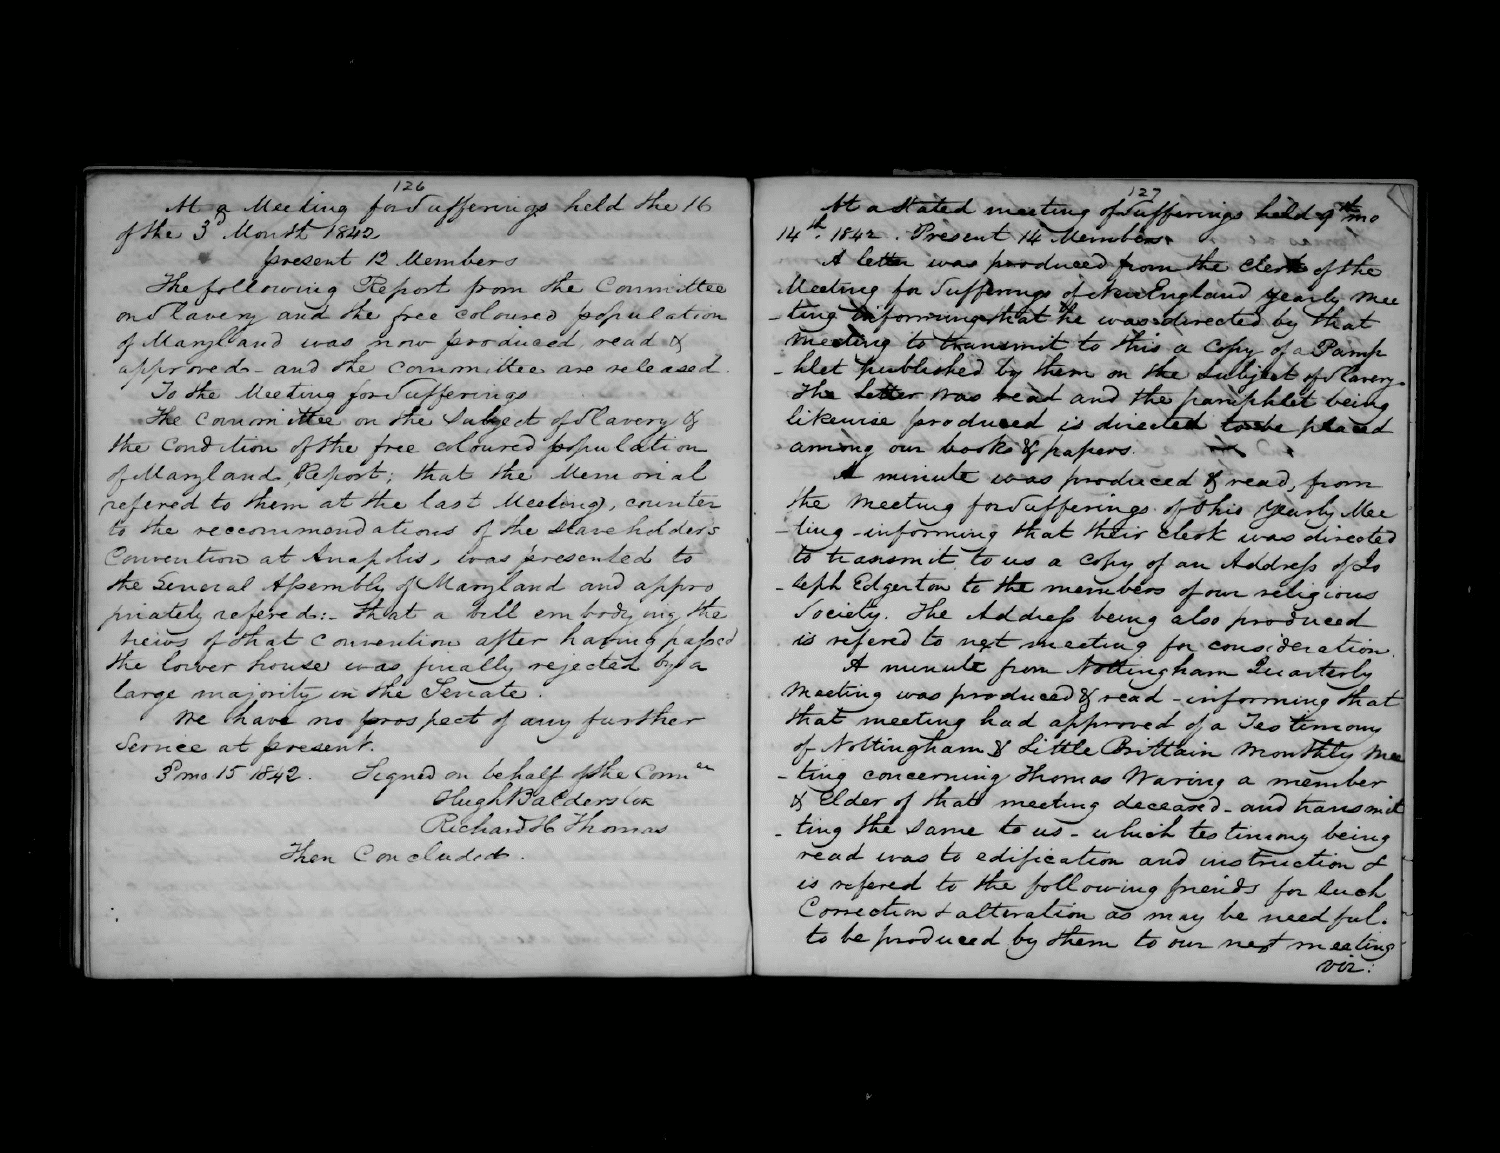 126
At a Meeting for Sufferings held the 16
of the 3d Month 1842
present 12 Members
The following Report from the Committee
on Slavery and the free coloured population
of Maryland was now produced, read &
approved - and the committee are released.
To the Meeting for Sufferings
The Committee on the Subject of Slavery &
the Condition of the free coloured population
of Maryland, Report; that the Memorial
refered to them at the last Meeting, counter
to the reccommendations of the slaveholders
Convention at Anapolis, was presented to
the General Assembly of Maryland and appro
priately refered:- That a bill embodying the
veiws of that Convention after having passed
the lower house was finally rejected by a
large majority in the Senate.
We have no prospect of any further
Service at present.
3d mo 15 1842. Signed on behalf of the Comee
Hugh Balderston
Richard H Thomas
Then Concluded.
127
At a Stated meeting of Sufferings held 9th mo
14th. 1842. Present 14 Members.
A letter was produced from the Clerk of the
Meeting for Sufferings of New England Yearly Mee
-ting informing that he was directed by that
meeting to transmit to this a Copy of a Pamp
-hlet published by them on the Subject of Slavery.
The Letter was read and the pamphlet being
likewise produced is directed to be placed
among our books & papers.
A minute was produced & read, from
the Meeting for Sufferings of Ohio Yearly Mee
-ting - informing that their clerk was directed
to transmit to us a Copy of an Address of Jo
-seph Edgerton to the members of our religious
Society. The Address being also produced
is refered to next meeting for consideration.
A minute from Nottingham Quarterly
Meeting was produced & read - informing that
that meeting had approved of a Testimony
of Nottingham & Little Brittain Monthly Mee
-ting concerning Thomas Waring a member
& Elder of that meeting deceased - and transmit
-ting the same to us - which testimony being
read was to edification and instruction &
is refered to the following friends for such
Correction & alteration as may be needful.
to be produced by them to our next meeting
viz: